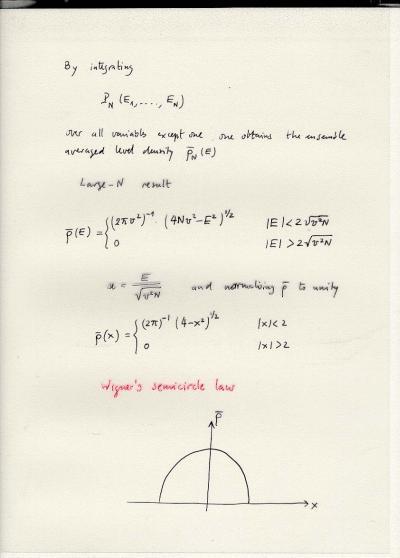 By integrating
P_N (E_1, ...., E_N)
over all variables except one, one obtains the ensemble
averaged level density ρ̄_N (E)
Large-N result
ρ̄(E) = { (2πv²)⁻¹ (4Nv²-E²)^{1/2} |E| < 2√(v²N)
0 |E| > 2√(v²N)
x = E/√(v²N) and normalizing ρ̄ to unity
ρ̄(x) = { (2π)⁻¹ (4-x²)^{1/2} |x| < 2
0 |x| > 2
Wigner's semicircle law
ρ̄
x